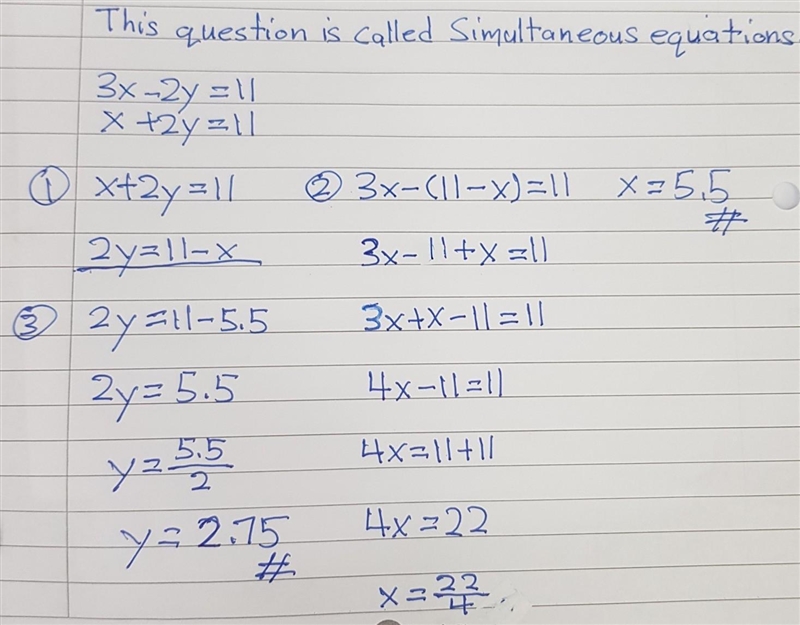 This question is called Simultaneous equations
3x-2y=11
x+2y=11
① x+2y=11
2y=11-x
② 3x-(11-x)=11
3x-11+x=11
3x+x-11=11
4x-11=11
4x=11+11
4x=22
x=22/4
x=5.5
#
③ 2y=11-5.5
2y=5.5
y=5.5/2
y=2.75
#